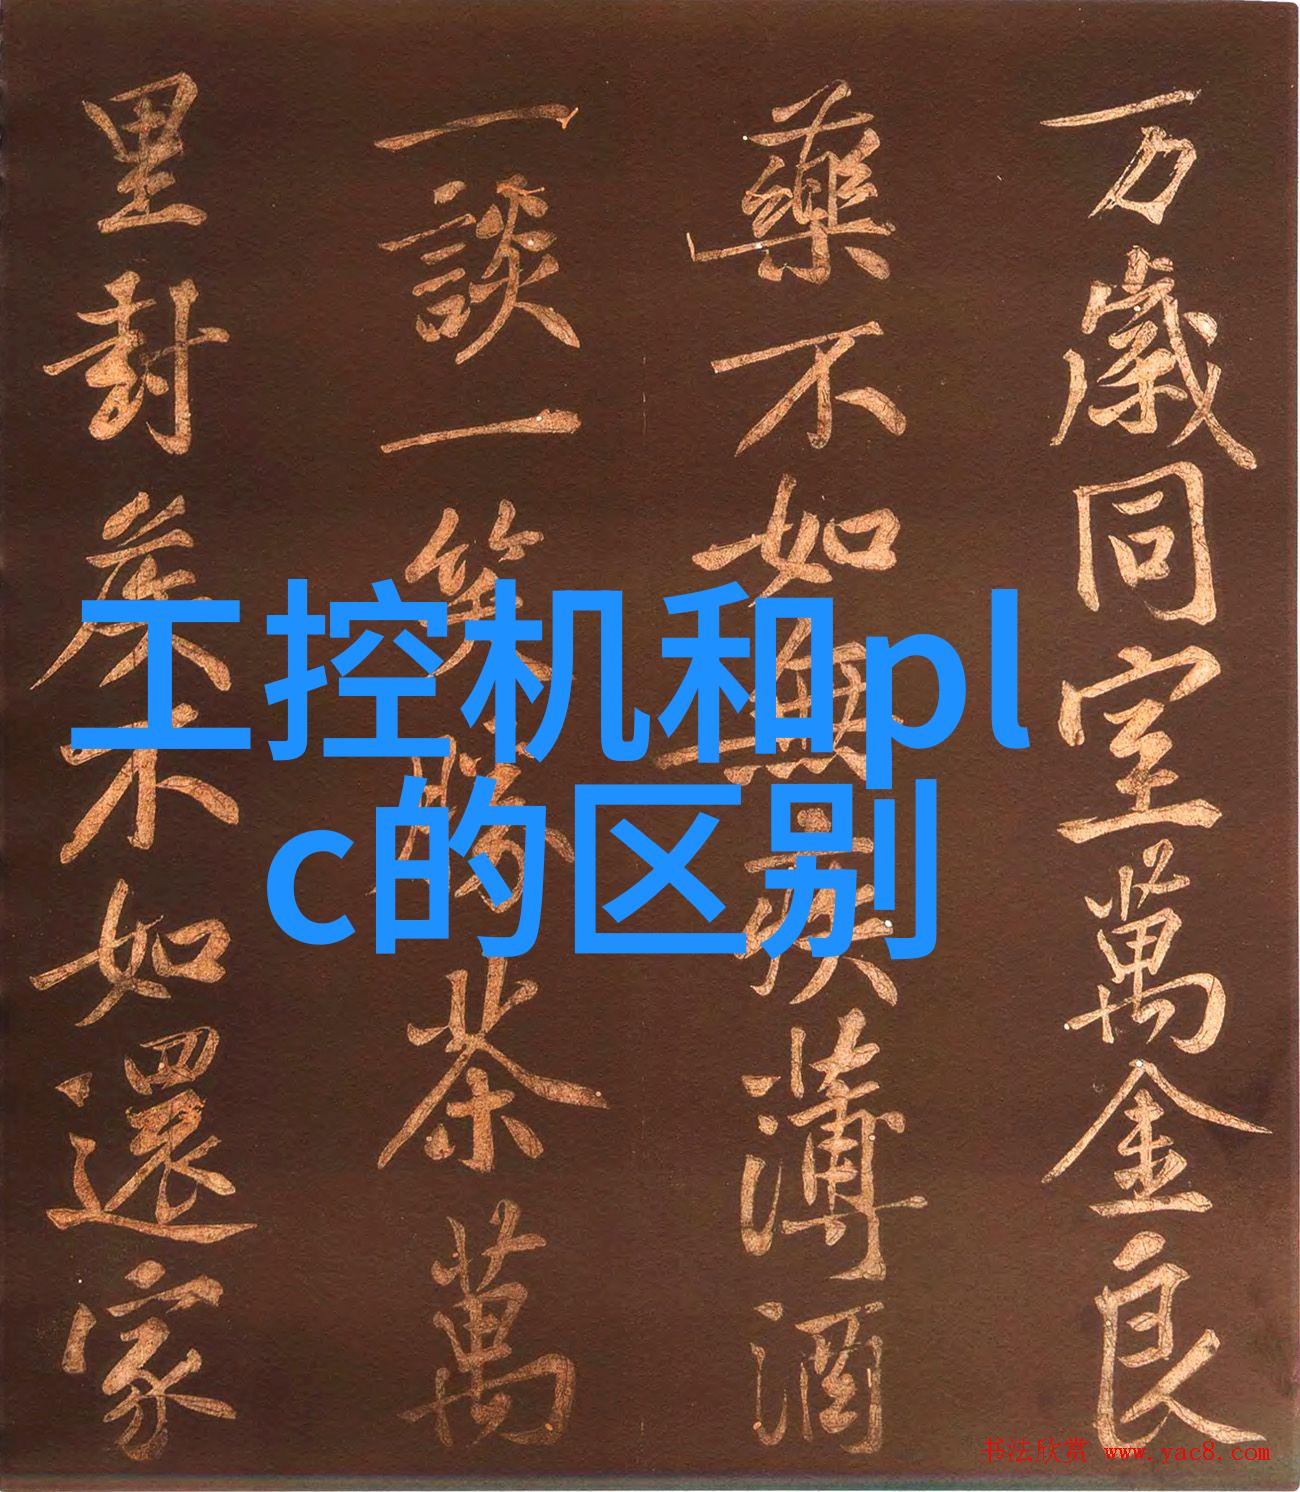 万歲同室萬金良
藥不如無疾薄酒
一談一笑勝茶萬
里封矦不如還家
工控机和pl
c的区别
书法欣赏 www.yac8.com